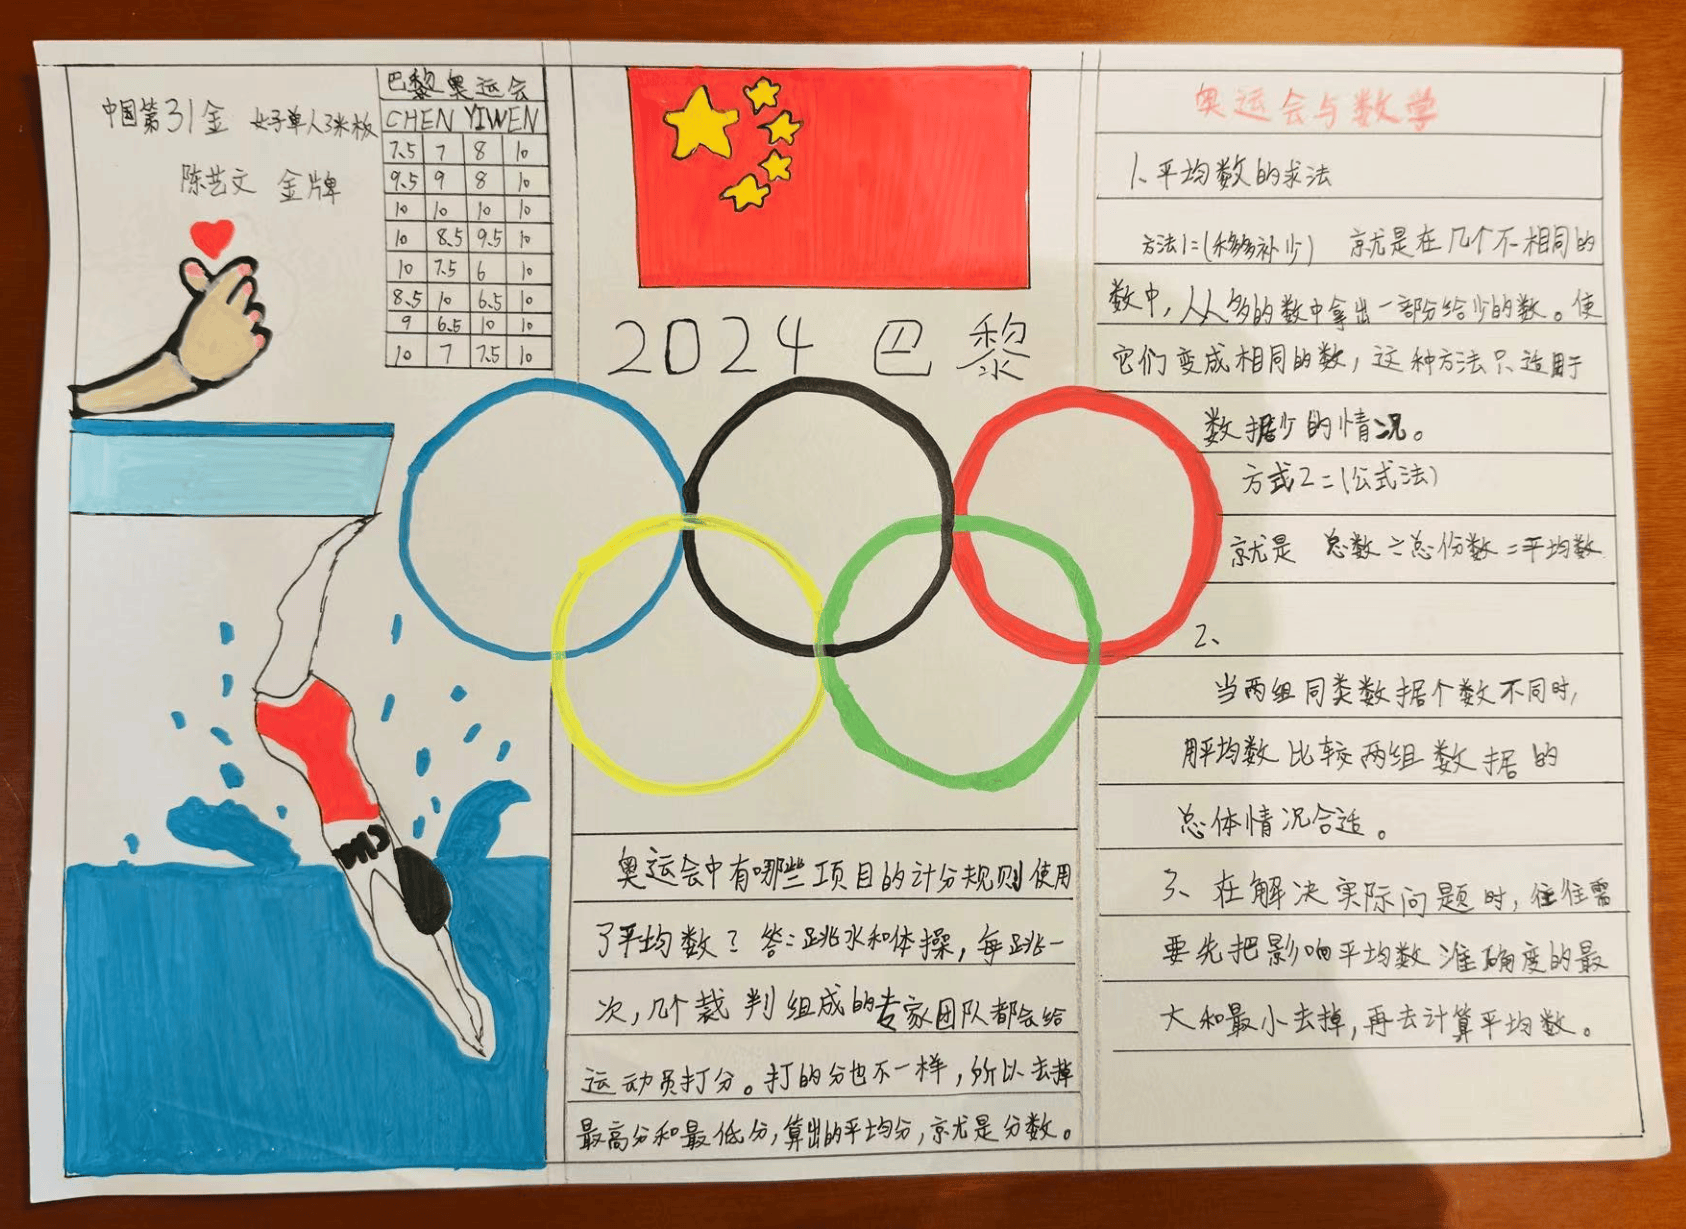 中国第31金 女子单人3米板
陈艺文 金牌
巴黎奥运会
CHEN YIWEN
7.5 7 8 10
9.5 9 8 10
10 10 10 10
10 8.5 9.5 10
10 7.5 6 10
8.5 10 6.5 10
9 6.5 10 10
10 7 7.5 10
CHN
2024 巴黎
奥运会中有哪些项目的计分规则使用
了平均数？答：跳水和体操，每跳一
次，几个裁判组成的专家团队都会给
运动员打分。打的分也不一样，所以去掉
最高分和最低分，算出的平均分，就是分数。
奥运会与数学
1、平均数的求法
方法1：（移多补少） 就是在几个不相同的
数中，从多的数中拿出一部分给少的数。使
它们变成相同的数，这种方法只适用于
数据少的情况。
方式2：（公式法）
就是 总数÷总份数=平均数
2、
当两组同类数据个数不同时，
用平均数比较两组数据的
总体情况合适。
3、在解决实际问题时，往往需
要先把影响平均数准确度的最
大和最小去掉，再去计算平均数。